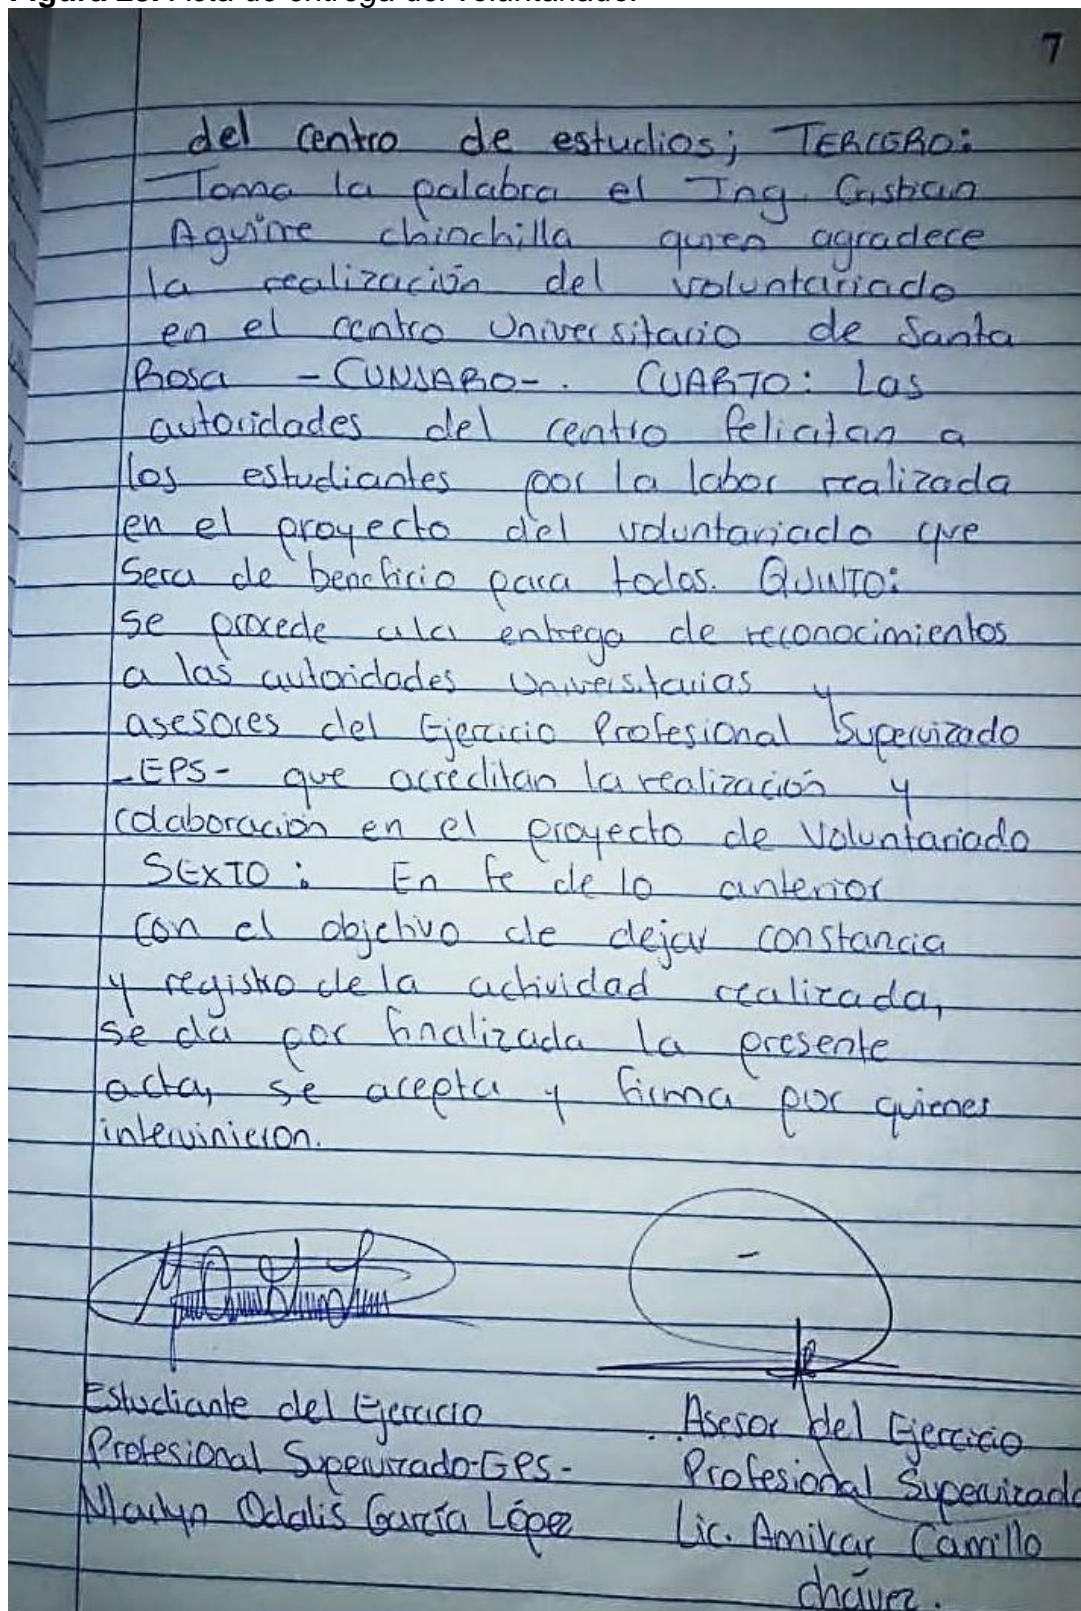 7
del centro de estudios; TERCERO:
Toma la palabra el Ing. Cristian
Aguirre chinchilla quien agradece
la realización del voluntariado
en el centro Universitario de Santa
Rosa -CUNSARO-. CUARTO: Las
autoridades del centro felicitan a
los estudiantes por la labor realizada
en el proyecto del voluntariado que
Sera de beneficio para todos. QUINTO:
se procede a la entrega de reconocimientos
a las autoridades Universitarias y
asesores del Ejercicio Profesional Supervizado
-EPS- que acreditan la realización y
colaboración en el proyecto de Voluntariado
SEXTO: En fe de lo anterior
con el objetivo de dejar constancia
y registro de la actividad realizada,
se da por finalizada la presente
acta, se acepta y firma por quienes
intervinieron.
Estudiante del Ejercicio
Profesional Supervizado-EPS-
Marlyn Odalis García López
Asesor del Ejercicio
Profesional Supervizado
Lic. Amilcar Carrillo
chávez.